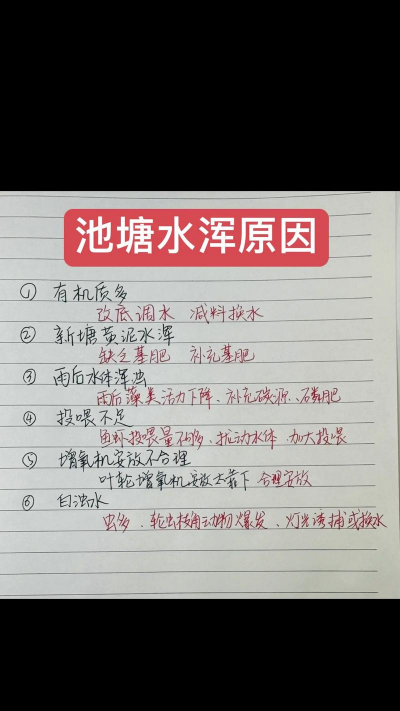 池塘水浑原因
① 有机质多
改底调水 减料换水
② 新塘黄泥水浑
缺乏基肥 补充基肥
③ 雨后水体浑浊
雨后藻类活力下降、补充碳源、磷肥
④ 投喂不足
鱼虾投喂量不够、扰动水体 加大投喂
⑤ 增氧机安放不合理
叶轮增氧机安放太靠下 合理安放
⑥ 白浊水
虫多、轮虫枝角动物爆发、灯光诱捕或换水